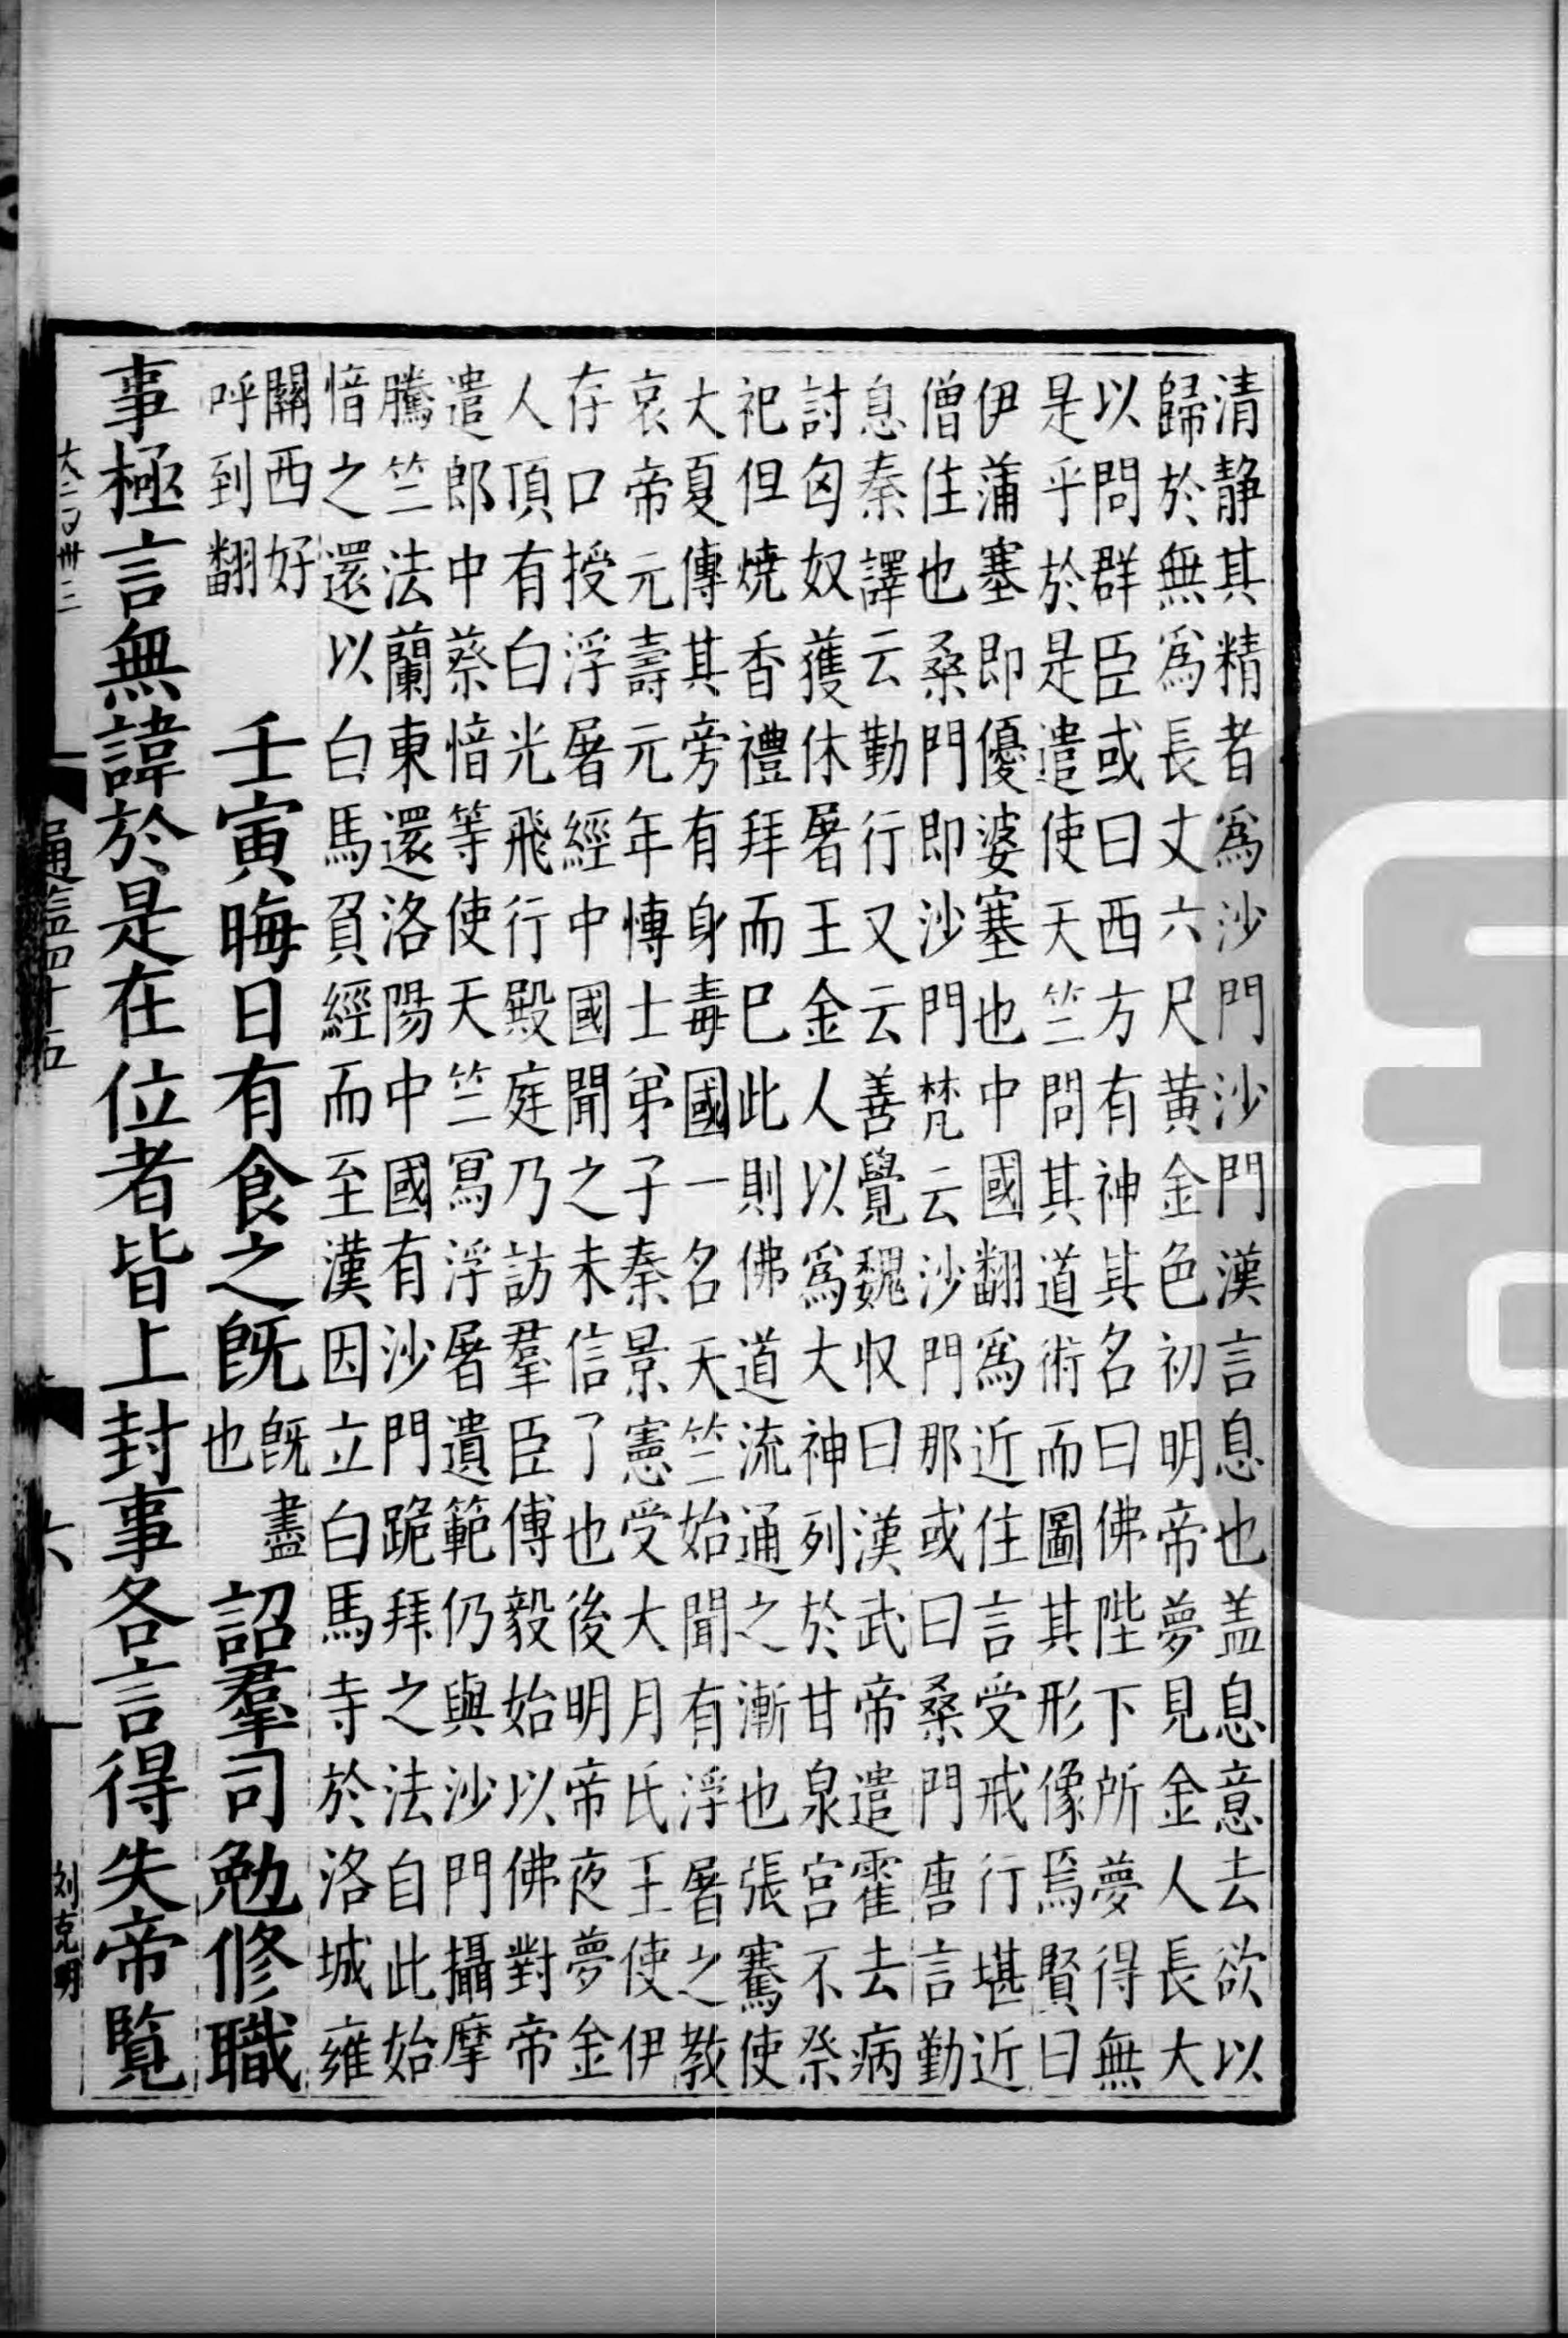 清静其精者爲沙門沙門漢言息也盖息意去欲以
歸於無爲長丈六尺黄金色初明帝夢見金人長大
以問群臣或曰西方有神其名曰佛陛下所夢得無
是乎於是遣使天竺問其道術而圖其形像焉賢曰
伊蒲塞即優婆塞也中國翻爲近住言受戒行堪近
僧住也桑門即沙門梵云沙門那或曰桑門唐言勤
息秦譯云勤行又云善覺魏収曰漢武帝遣霍去病
討匈奴獲休屠王金人以爲大神列於甘泉宮不祭
祀但焼香禮拜而已此則佛道流通之漸也張騫使
大夏傳其旁有身毒國一名天竺始聞有浮屠之教
哀帝元壽元年博士弟子秦景憲受大月氏王使伊
存口授浮屠經中國聞之未信了也後明帝夜夢金
人頂有白光飛行殿庭乃訪羣臣傅毅始以佛對帝
遣郎中蔡愔等使天竺寫浮屠遺範仍與沙門攝摩
騰竺法蘭東還洛陽中國有沙門跪拜之法自此始
愔之還以白馬負經而至漢因立白馬寺於洛城雍
關西好
呼到翻
壬寅晦日有食之既
既盡
也
詔羣司勉修職
事極言無諱於是在位者皆上封事各言得失帝覧
大二百卅三
通監四十五
六
刘克明